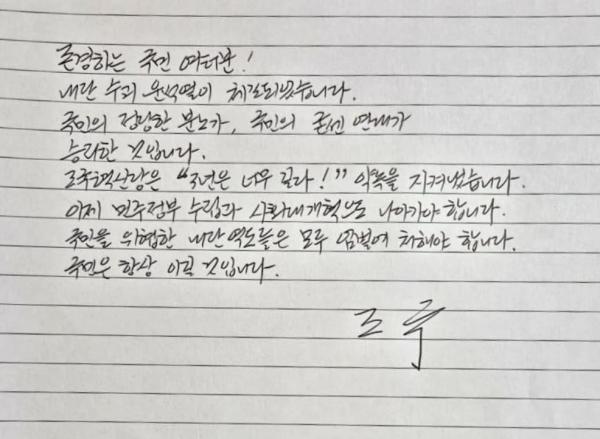 존경하는 국민 여러분!
내란 수괴 윤석열이 체포되었습니다.
국민의 정당한 분노가, 국민의 굳센 연대가
승리한 것입니다.
조국혁신당은 “3년은 너무 길다!” 약속을 지켜냈습니다.
이제 민주정부 수립과 사회대개혁으로 나아가야 합니다.
국민을 위협한 내란 역도들은 모두 엄벌에 처해야 합니다.
국민은 항상 이길 것입니다.
조 국